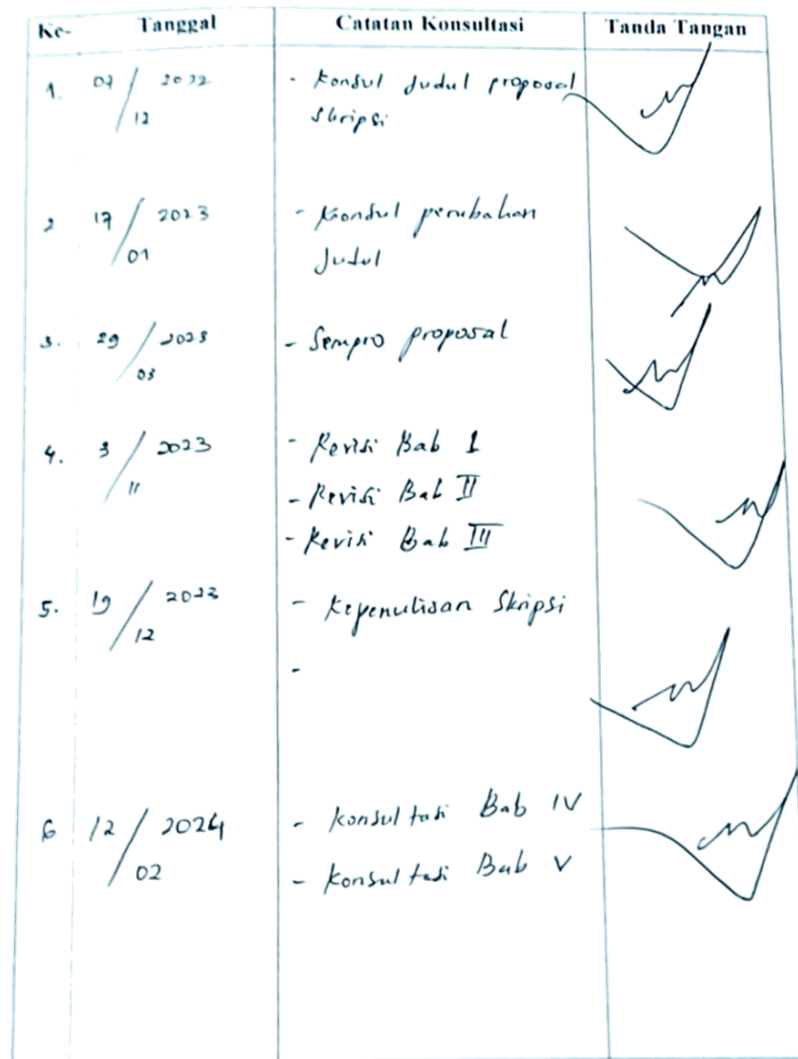 Ke- Tanggal Catatan Konsultasi Tanda Tangan
1. 07/12 2022 - Konsul Judul proposal
Skripsi
2 17/01 2023 - Konsul perubahan
Judul
3. 29/03 2023 - Sempro proposal
4. 3/11 2023 - Revisi Bab I
- Revisi Bab II
- Revisi Bab III
5. 19/12 2023 - Kepenulisan Skripsi
-
6 12/02 2024 - Konsultasi Bab IV
- Konsultasi Bab V